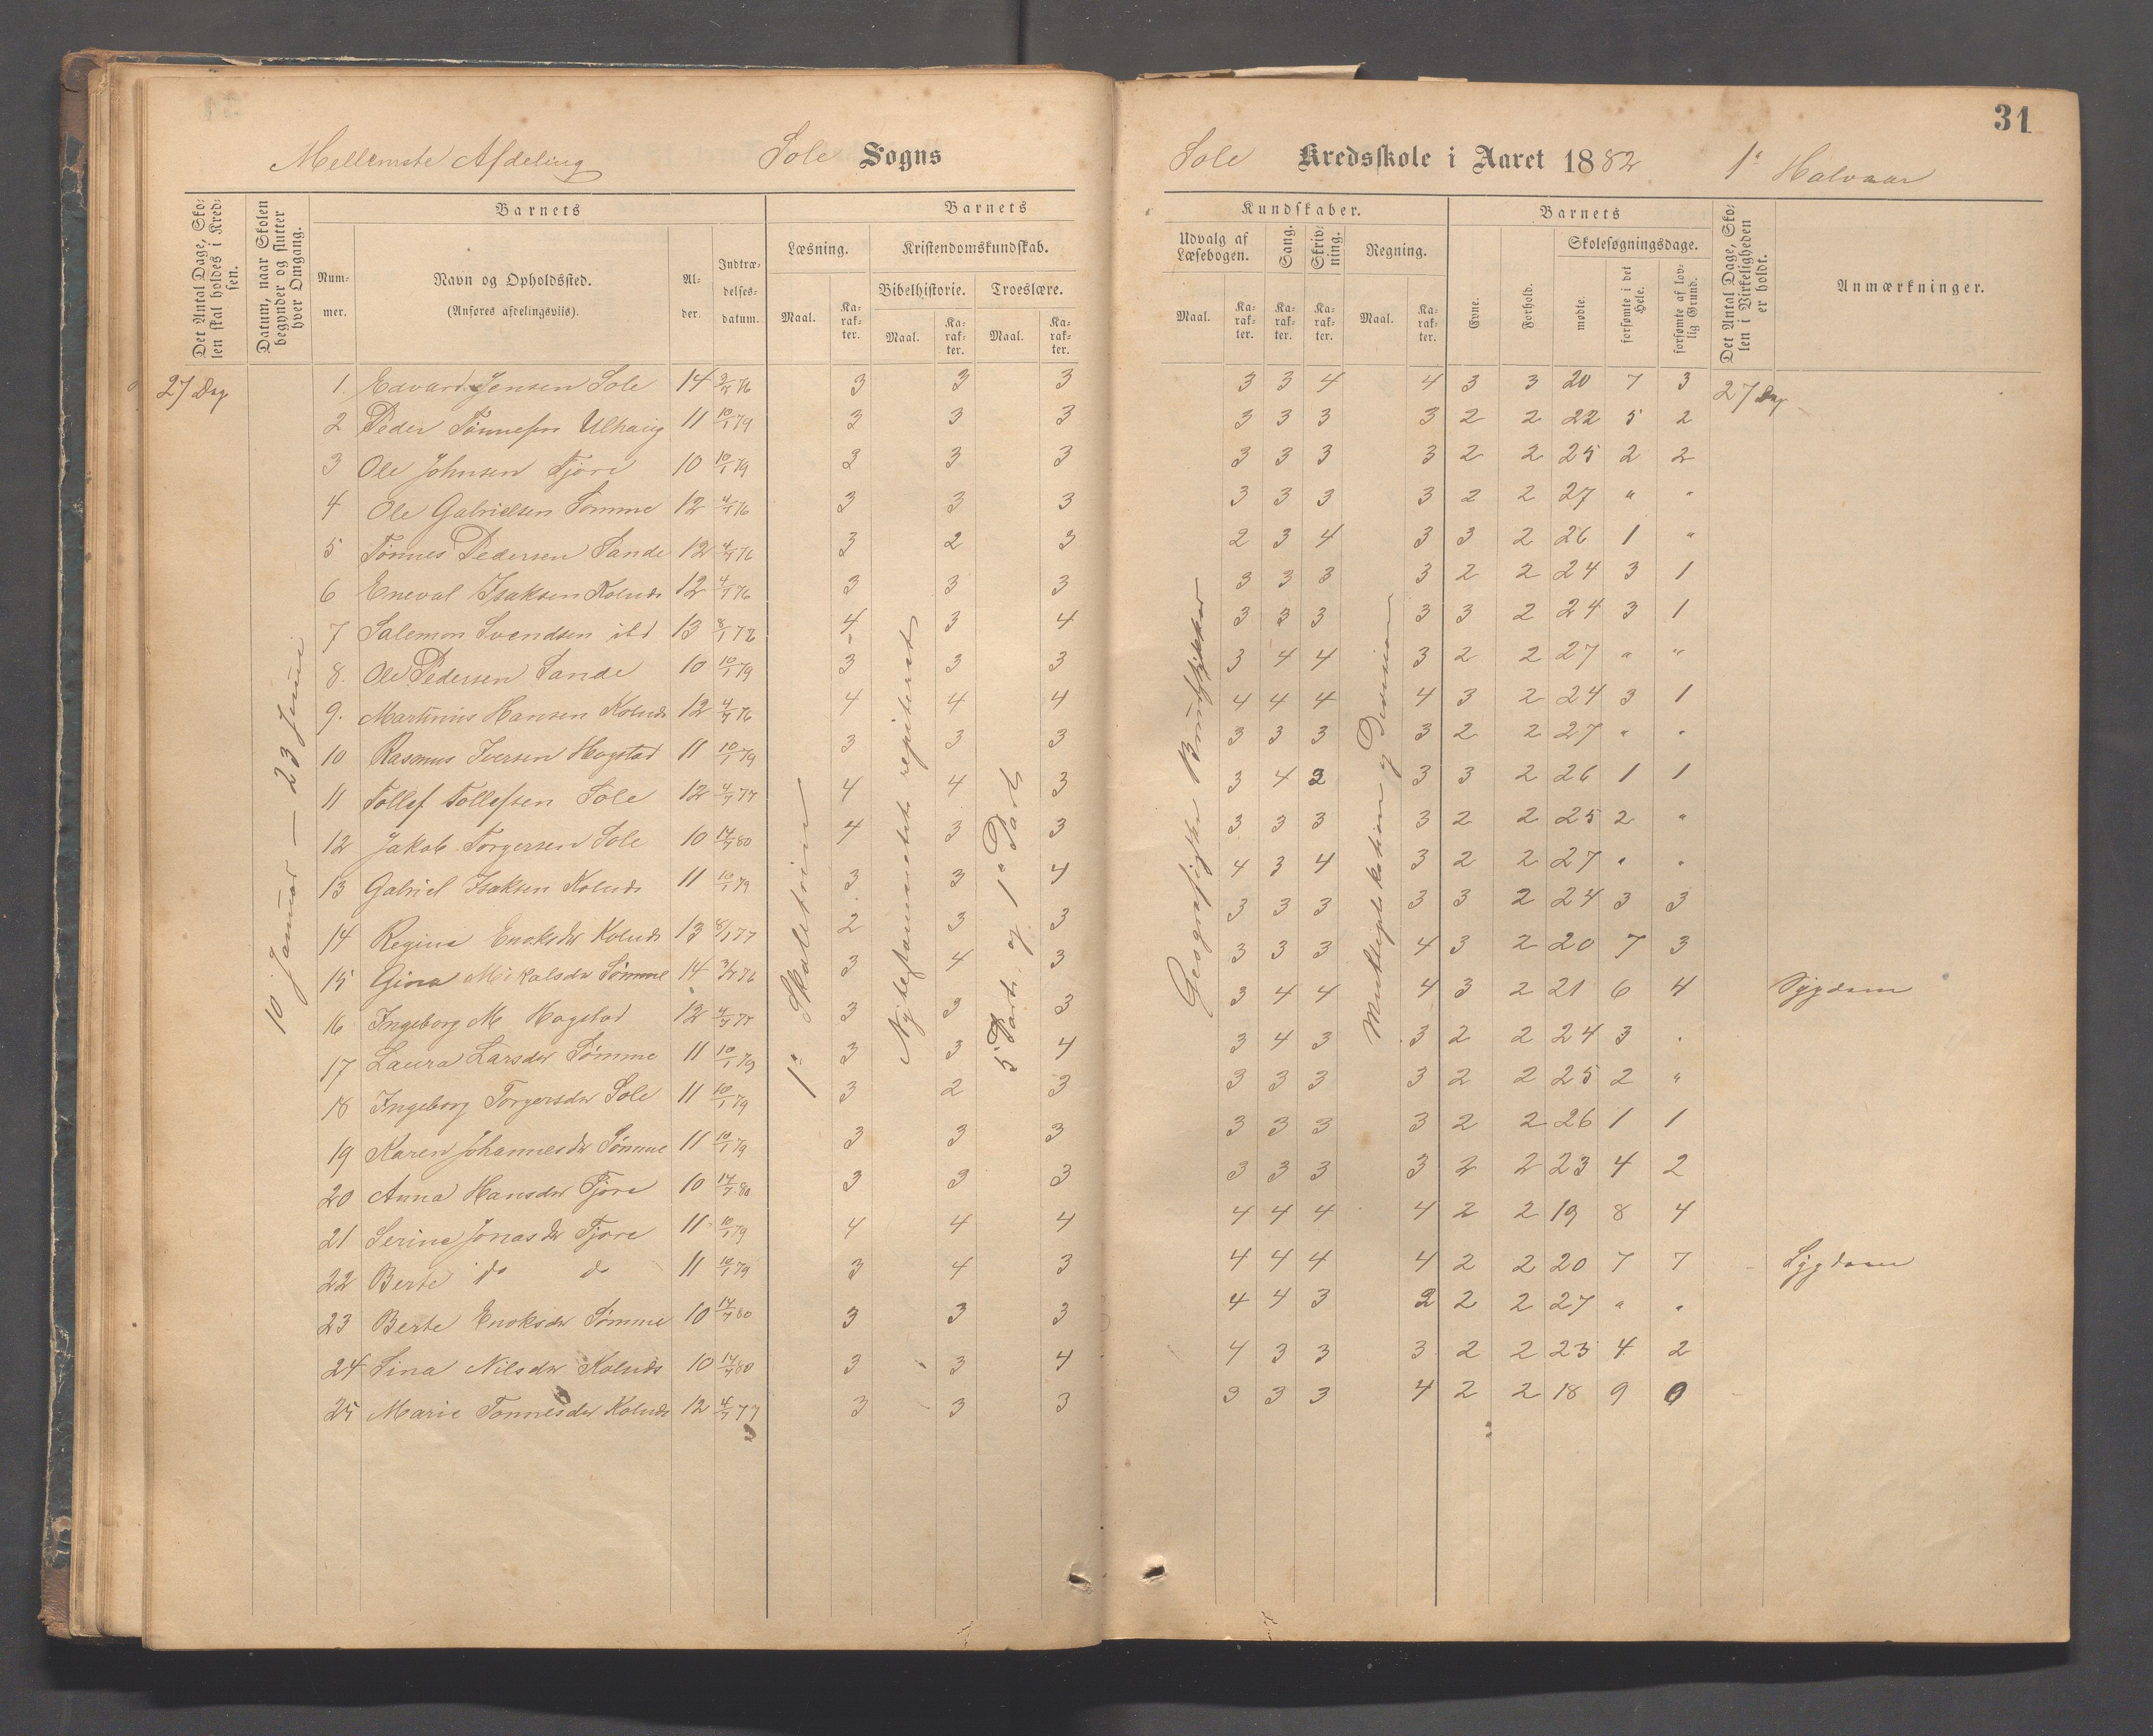 31
Mellemste Afdeling Sole Sogns Sole Kredsskole i Aaret 1882 1ste Halvaar
Det Antal Dage, Skolen skal holdes i Kredsen.
Datum, naar Skolen begynder og slutter hver Omgang.
Barnets
Nummer.
Navn og Opholdssted.
(Anføres afdelingsviis).
Alder.
Indtrædelses-datum.
Barnets
Læsning.
Maal.
Karakter.
Kristendomskundskab.
Bibelhistorie.
Maal.
Karakter.
Troeslære.
Maal.
Karakter.
Kundskaber.
Udvalg af Læsebogen.
Maal.
Karakter.
Sang.
Karakter.
Skrivning.
Karakter.
Regning.
Maal.
Karakter.
Barnets
Evne.
Forhold.
Skolesøgningsdage.
mødte.
forsømte i det Hele.
forsømte af lovlig Grund.
Det Antal Dage, Skolen i Virkeligheden er holdt.
Anmærkninger.
27 Dag
10 Januar — 23 Juni
1ste Skoletrin
Nytestamentet repeteret
5 Part. og 1ste Part
Multiplikation og Division
1. Edvard Jensen Sole 14 3/7 76 3 3 3 3 3 4 4 3 3 20 7 3 27 Dag
2 Peder Tønnesen Ulhaug 11 10/1 79 3 3 3 3 3 3 3 2 2 22 5 2
3 Ole Johnsen Fjøre 10 10/1 79 3 3 3 3 3 3 3 2 2 25 2 2
4 Ole Gabrielsen Sømme 12 4/7 76 3 3 3 3 3 3 3 2 2 27 " "
5 Tønnes Pedersen Sande 12 4/7 76 3 2 3 2 3 4 3 3 2 26 1 "
6 Eneval Isaksen Kolnds 12 4/7 76 3 3 3 3 3 3 3 2 2 24 3 1
7 Salemon Svendsen ibd 13 8/1 78 4 3 4 3 3 3 3 3 2 24 3 1
8. Ole Pedersen Sande 10 10/1 79 3 3 3 3 4 4 3 2 2 27 " "
9. Martinius Hansen Kolnds 12 4/7 76 4 4 4 4 4 4 4 3 2 24 3 1
10 Rasmus Iversen Hogstad 11 10/1 79 3 3 3 3 3 3 3 2 2 27 " "
11 Tollef Tollefsen Sole 12 4/7 77 4 4 3 3 4 3 3 3 2 26 1 1
12 Jakob Torgersen Sole 10 14/7 80 4 3 3 3 3 3 3 2 2 25 2 "
13 Gabriel Isaksen Kolnds 11 10/1 79 3 3 4 4 3 4 3 2 2 27 " "
14 Regine Enoksdr Kolnds 13 8/1 77 2 3 3 3 3 3 3 3 2 24 3 3
15 Gina Mikalsdr Sømme 14 3/7 76 3 4 3 3 3 3 4 3 2 20 7 3
16 Ingeborg M Hogstad 12 4/7 77 3 3 3 3 4 4 4 3 2 21 6 4 Sygdom
17 Laura Larsdr Sømme 11 10/1 79 3 3 4 3 4 3 3 2 2 24 3 "
18 Ingeborg Torgersdr Sole 11 10/1 79 3 2 3 3 3 3 3 2 2 25 2 "
19 Karen Johannesdr Sømme 11 10/1 79 3 3 3 3 3 3 3 2 2 26 1 1
20 Anna Hansdr Fjøre 10 14/7 80 3 3 3 3 3 3 3 2 2 23 4 2
21 Serine Jonasdr Fjøre 11 10/1 79 4 4 4 4 4 4 4 2 2 19 8 4
22 Berte do do 11 10/1 79 3 4 3 4 4 4 4 2 2 20 7 7 Sygdom
23 Berte Enoksdr Sømme 10 14/7 80 3 3 3 4 4 3 2 2 2 27 " "
24 Sina Nilsdr Kolnds 10 14/7 80 3 3 4 4 3 3 3 2 2 23 4 2
25 Marie Tønnesdr Kolnds 12 4/7 77 3 3 3 3 3 3 4 2 2 18 9 0